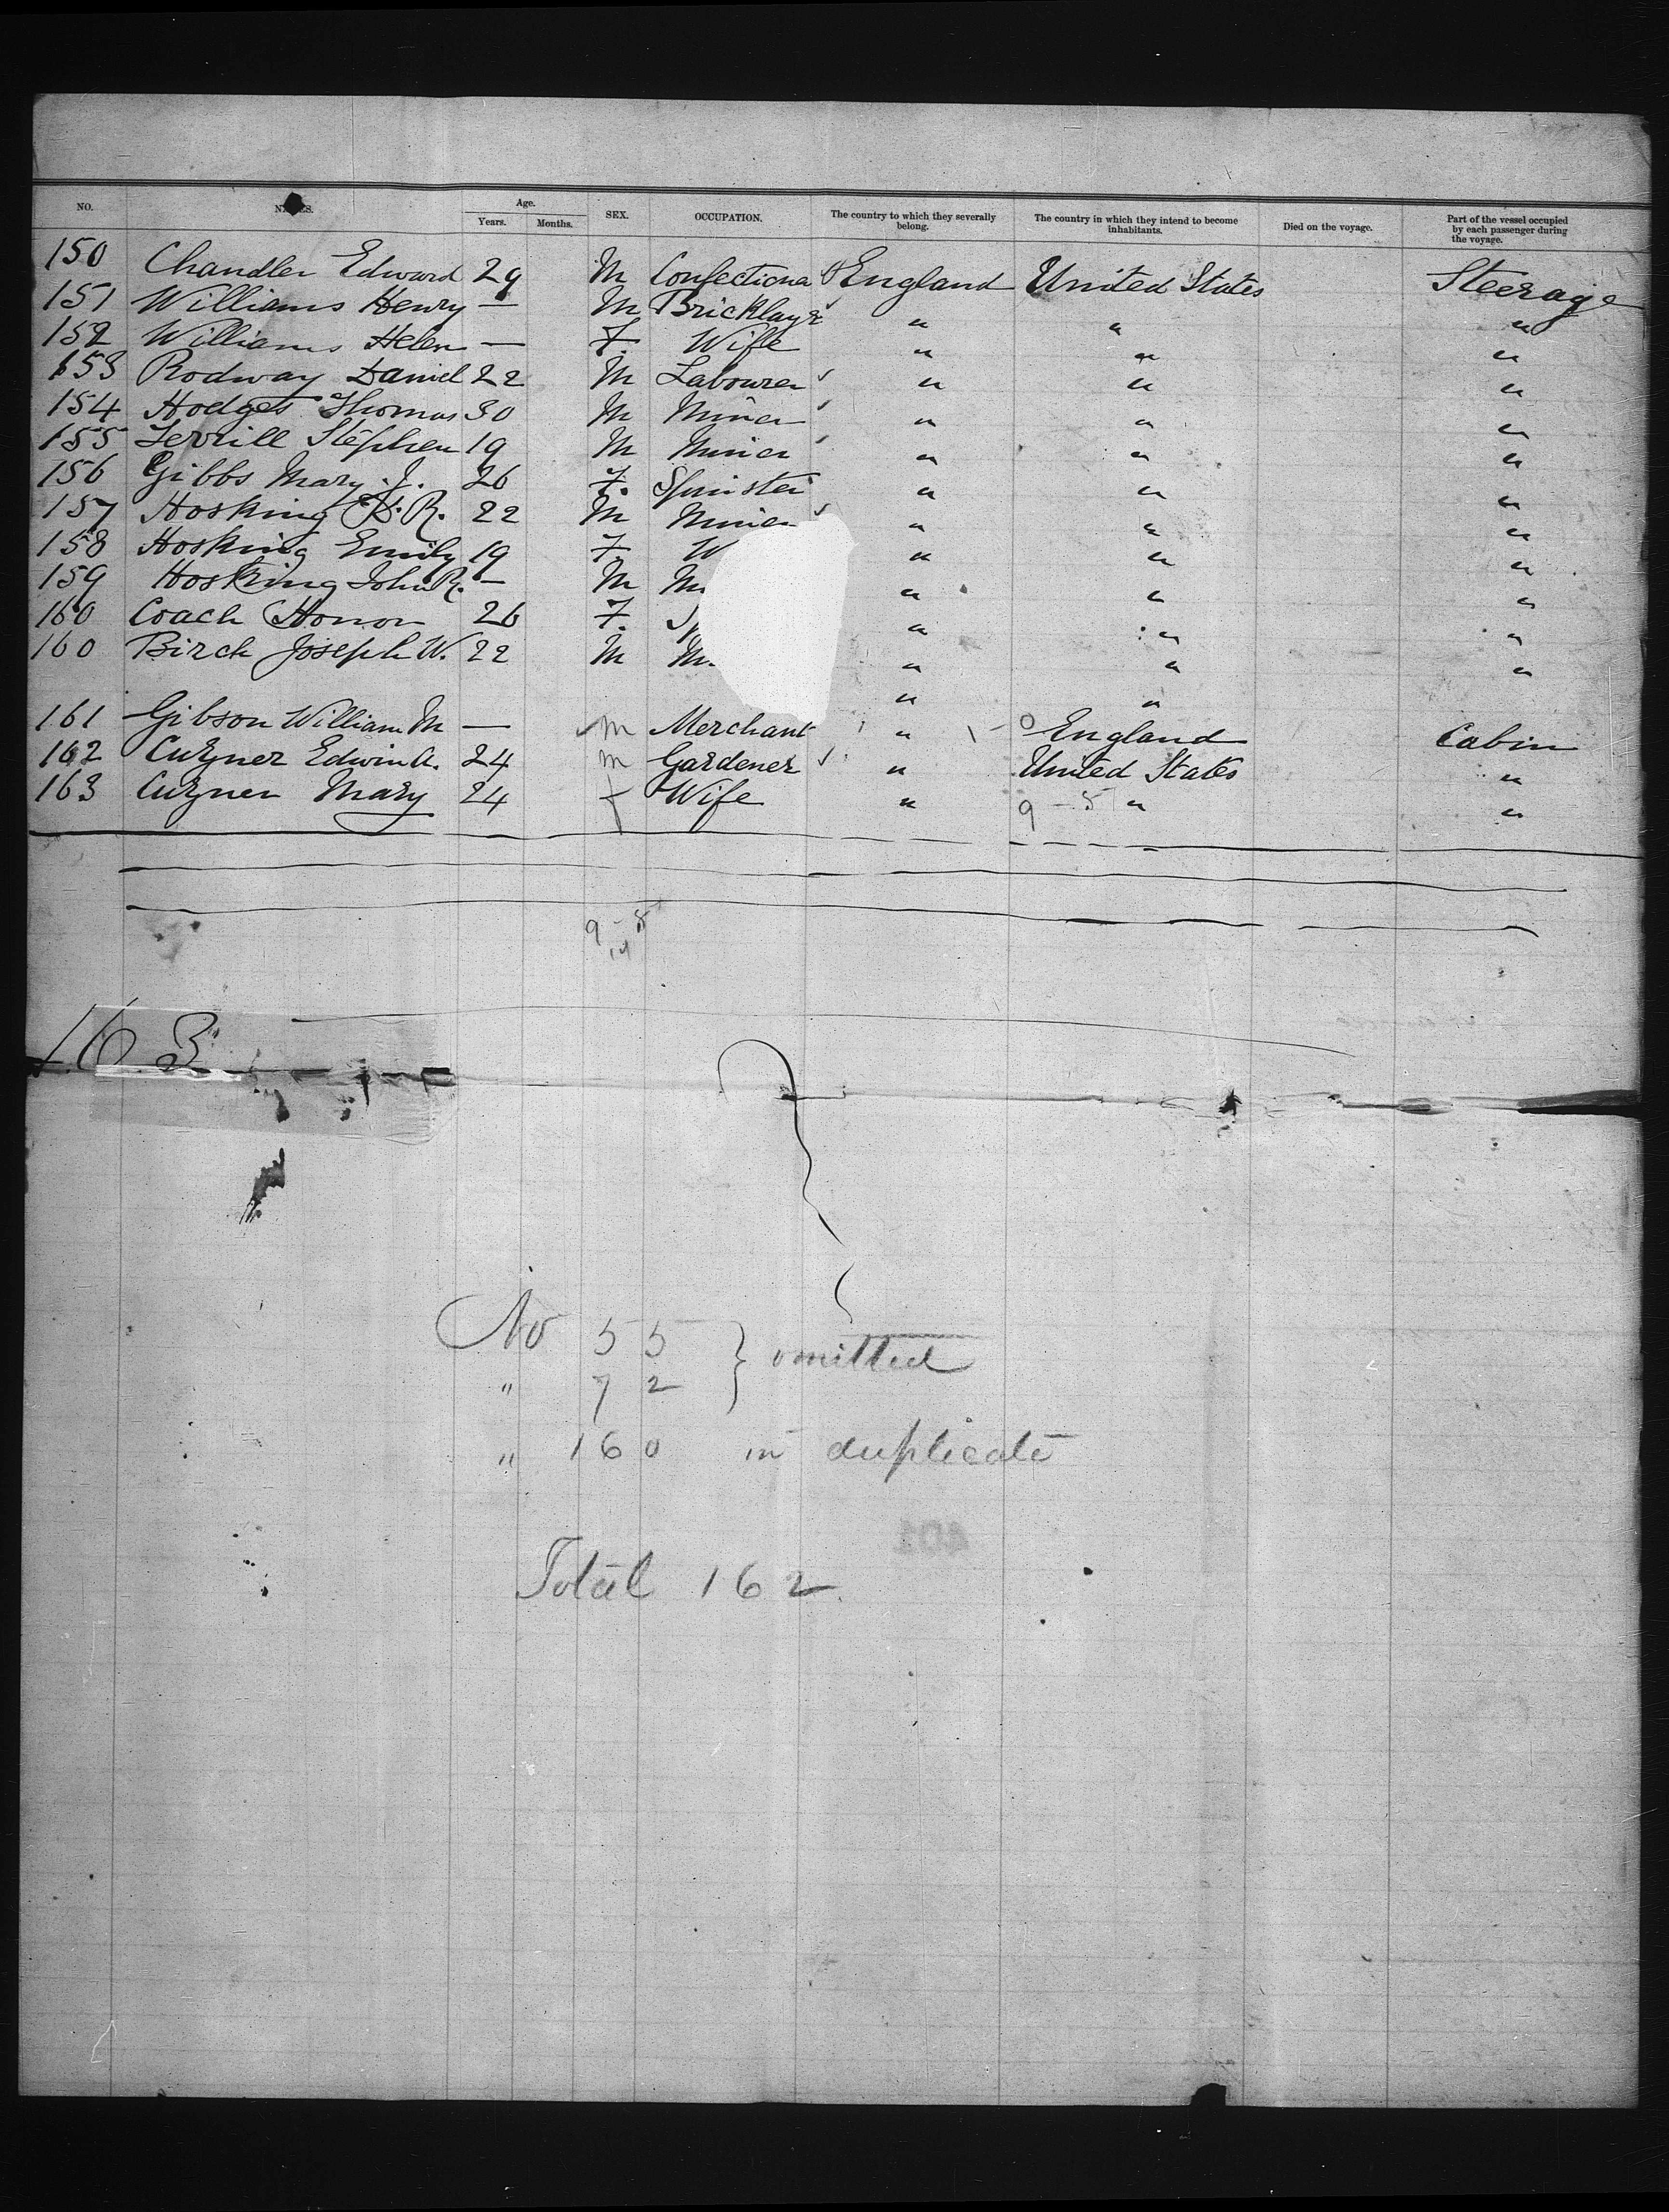 NO. NAMES. Age. Years. Months. SEX. OCCUPATION. The country to which they severally belong. The country in which they intend to become inhabitants. Died on the voyage. Part of the vessel occupied by each passenger during the voyage.
150 Chandler Edward 29 M Confectioner England United States Steerage
151 Williams Henry — M Bricklayer " " "
152 Williams Helen — F Wife " " "
153 Rodway Daniel 22 M Labourer " " "
154 Hodges Thomas 30 M Miner " " "
155 Terrill Stephen 19 M Miner " " "
156 Gibbs Mary J. 26 F. Spinster " " "
157 Hosking R. 22 M Miner " " "
158 Hosking Emily 19 F " " "
159 Hosking John R. — M " " "
160 Coach Honor 26 F " " "
160 Birch Joseph W. 22 M " " "
" "
161 Gibson William M — M Merchant " England Cabin
162 Curner Edwin A. 24 m Gardener " United States "
163 Curner Mary 24 f Wife " 9 - 5 " "
9 - 5
163
No 55 } omitted
" 72
" 160 in duplicate
Total 162